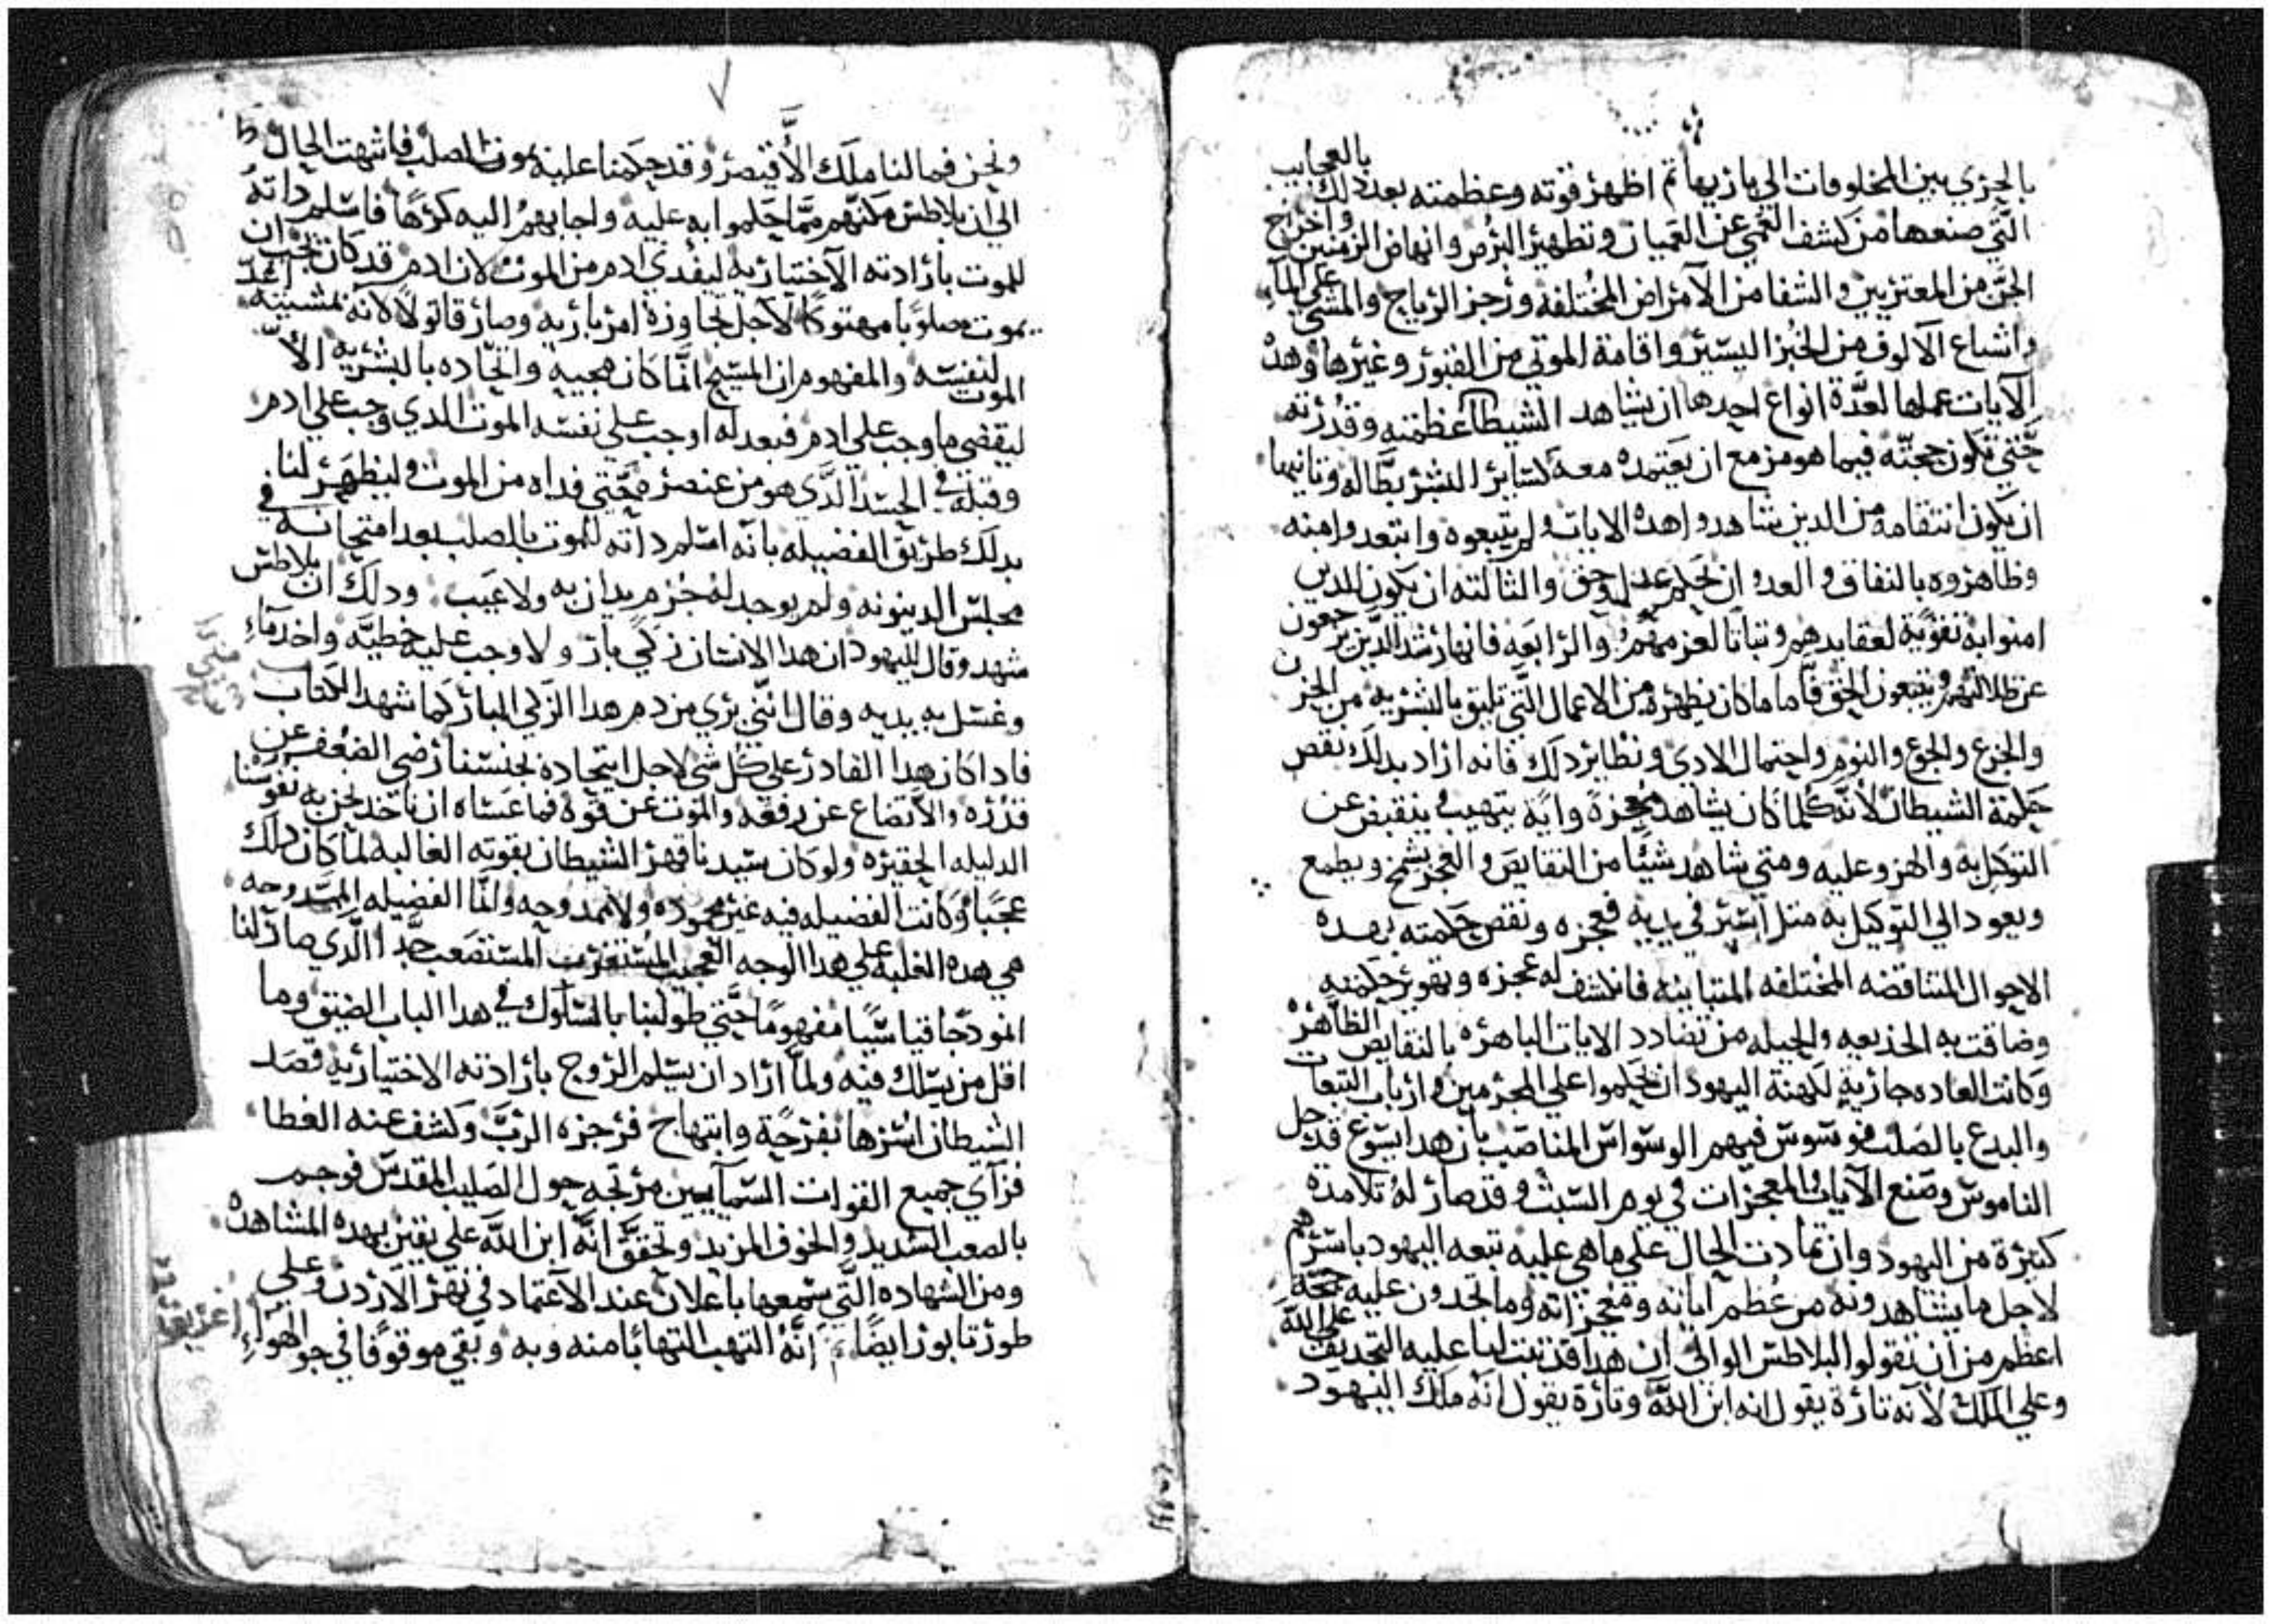 بالحري بين المخلوقات الي باريها ثم اظهر قوته وعظمته بعد دلك بالعجايب
التي صنعها من كشف العمي عن العميان وتطهير البرص وانهاض الزمنين واخراج
الجن من المعتريين والشفا من الامراض المختلفه وزجر الرياح والمشي علي الماء
واشباع الالوف من الخبز اليسير واقامة الموتي من القبور وغيرها وهده
الايات عملها لعدة انواع احدها ان يشاهد الشيطان عظمته وقدرته
حتي تكون حجته فيما هو مزمع ان يعتمده معه كساير البشر بطاله وتانيها
ان يكون انتقامه من الدين شاهدوا هده الايات ولم يتبعوه وابتعدوا منه
وظاهروه بالنفاق والعدوان بحكم عدل وحق والثالثه ان يكون للدين
امنوا به تقوية لعقايدهم وتباتا لعزمهم والرابعه فانها رشد للدين يرجعون
عن ظلالتهم ويتبعون الحق فاما ما كان يظهره من الاعمال التي تليق بالبشرية من الحزن
والجزع والجوع والنوم واحتمال الادي ونظاير دلك فانه اراد بدلك نقص
حكمة الشيطان لانه كلما كان يشاهد معجزة واية يتهيب وينقبض عن
التوكل به والهزو عليه ومتي شاهد شيئا من النقايص والعجز يشمخ ويطمع
ويعود الي التوكيل به متل اسير في يديه فعجزه ونقص حكمته بهده
الاحوال المتناقضه المختلفه المتباينه فانكشف له عجزه وتهوير حكمته
وضاقت به الخديعه والحيله من تضادد الايات الباهره بالنقايص الظاهره
وكانت العاده جارية لكهنة اليهود ان يحكموا علي المجرمين وارباب التبعات
والبدع بالصلب فوسوس فيهم الوسواس المناصب بان هدا يسوع قد حل
الناموس وصنع الايات والمعجزات في يوم السبت وقد صار له تلامدة
كتيرة من اليهود وان تمادت الحال علي ماهي عليه تبعه اليهود باسرهم
لاجل ما يشاهدونه من عظم اياته ومعجزاته وما تجدون عليه حجة
اعظم من ان تقولوا لبلاطس الوالي ان هدا قد تبت لنا عليه التجديف علي الله
وعلي الملك لانه تارة يقول انه ابن الله وتارة يقول انه ملك اليهود
ونحن فما لنا ملك الا قيصر وقد حكمنا عليه بموت الصلب فانتهت الحال
الي ان بلاطس مكنهم مما حكموا به عليه واجابهم اليه كرها فاسلم داته
للموت بارادته الاختيارية ليفدي ادم من الموت لان ادم قد كان يجب ان
يموت مصلوبا مهتوكا لاجل تجاوزة امر باريه وصار قاتولا لانه بمشيته اعد
الموت لنفسه والمفهوم ان المسيح انما كان مجييه واتحاده بالبشرية الا
ليقضي ما وجب علي ادم فبعدله اوجب علي نفسه الموت الدي وجب علي ادم
وقبله في الجسد الدي هو من عنصره حتي فداه من الموت وليظهر لنا
بدلك طريق الفضيله بانه اسلم داته للموت بالصلب بعد امتحانه في
مجلس الدينونه ولم يوجد له جرم يدان به ولا عيب ودلك ان بلاطس
شهد وقال لليهود ان هدا الانسان زكي بار ولا وجب عليه خطية واخد ماء
وغسل به يديه وقال انني بري من دم هدا الزكي البار كما شهد الكتاب
فادا كان هدا القادر علي كل شي لاجل اتحاده بجنسنا رضي الضعف عن
قدره والاتضاع عن رفعه والموت عن قوة فما عساه ان ناخد نحن به نفوسنا
الدليله الحقيره ولو كان سيدنا قهر الشيطان بقوته الغالبه لما كان دلك
عجبا وكانت الفضيله فيه غير محموده ولا ممدوحه وانما الفضيله الممدوحه
هي هده الغلبه علي هدا الوجه العجيب المستغرب المستصعب جدا الدي صار لنا
انمودجا قياسيا مفهوما حتي طولبنا بالسلوك في هدا الباب الضيق وما
اقل من يسلك فيه ولما اراد ان يسلم الروح بارادته الاختيارية قصد
الشيطان اسرها بفرحة وابتهاج فزجزه الرب وكشف عنه الغطا
فراي جميع القوات السماييين مرتجه حول الصليب المقدس فوجم
بالصعب الشديد والخوف المزيد وتحقق انه ابن الله علي يقين بهده المشاهدة
ومن الشهاده التي سمعها باعلان عند الاعتماد في نهر الاردن وعلي
طور تابور ايضا انه التهب التهابا منه وبه وبقي موقوفا في جو الهواء